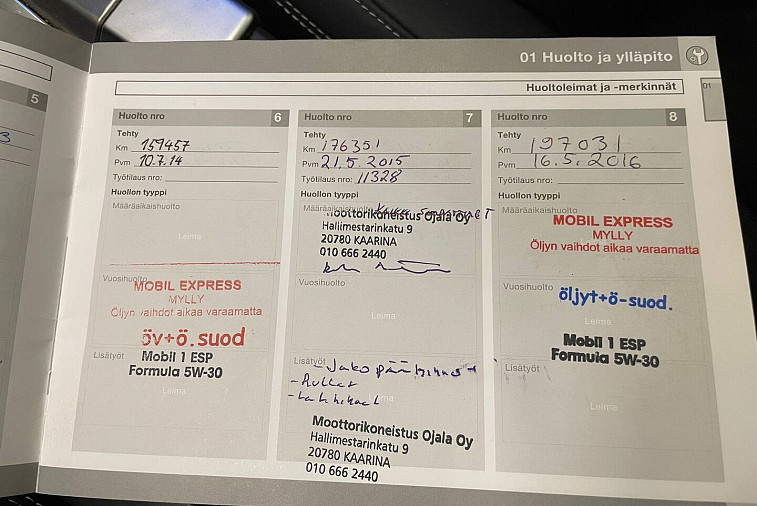 01 Huolto ja ylläpito
Huoltoleimat ja -merkinnät
01
5
Huolto nro 6
Tehty
Km 159457
Pvm 10.7.14
Työtilaus nro:
Huollon tyyppi
Määräaikaishuolto
Leima
Vuosihuolto
MOBIL EXPRESS
MYLLY
Öljyn vaihdot aikaa varaamatta
öv+ö.suod
Lisätyöt
Mobil 1 ESP
Formula 5W-30
Leima
Huolto nro 7
Tehty
Km 176351
Pvm 21.5.2015
Työtilaus nro: 11328
Huollon tyyppi
Määräaikaishuolto
Moottorikoneistus Ojala Oy
Hallimestarinkatu 9
20780 KAARINA
010 666 2440
Vuosihuolto
Leima
Lisätyöt
- Jakopään
Leima
Moottorikoneistus Ojala Oy
Hallimestarinkatu 9
20780 KAARINA
010 666 2440
Huolto nro 8
Tehty
Km 197031
Pvm 16.5.2016
Työtilaus nro:
Huollon tyyppi
Määräaikaishuolto
MOBIL EXPRESS
MYLLY
Öljyn vaihdot aikaa varaamatta
Vuosihuolto
öljyt+ö-suod.
Leima
Mobil 1 ESP
Formula 5W-30
Lisätyöt
Leima